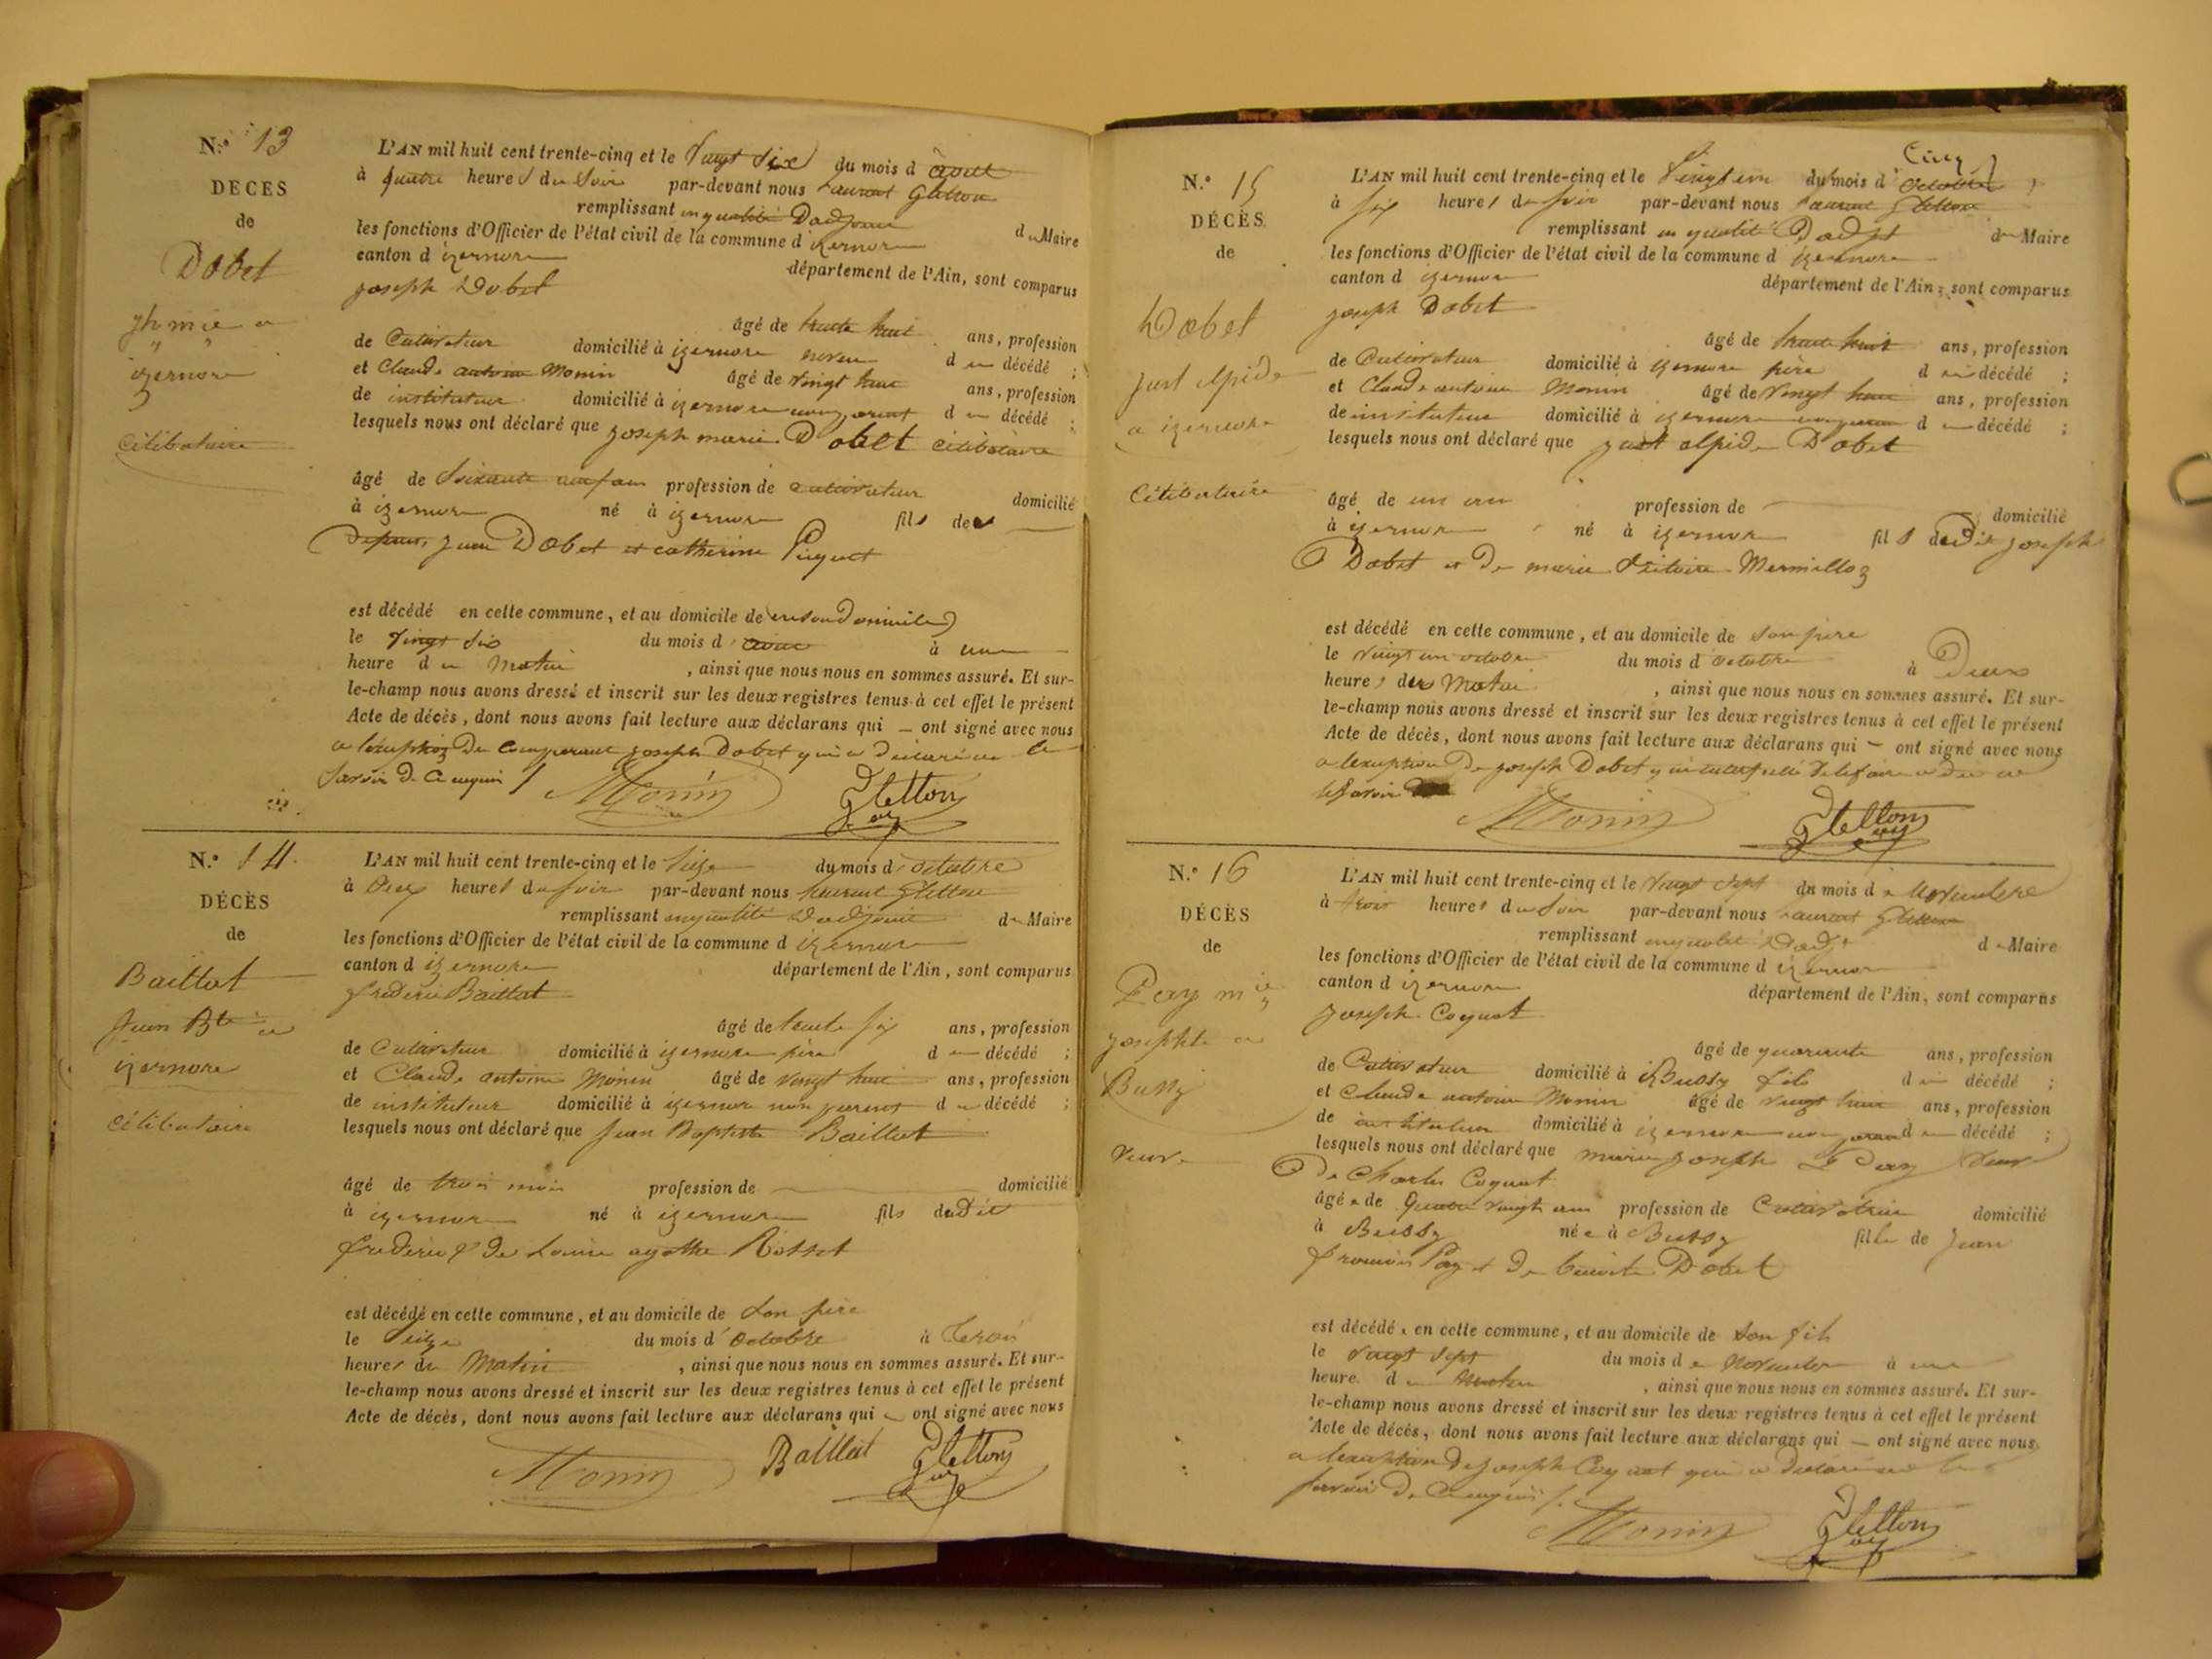 N.º 13
DÉCÈS
de
Dobet
jph mie a
izernore
célibataire
L'AN mil huit cent trente-cinq et le vingt six du mois d'août
à quatre heures du soir par-devant nous Laurent Gletton
remplissant en qualité D'adjoint du Maire
les fonctions d'Officier de l'état civil de la commune d izernore
canton d izernore département de l'Ain, sont comparus
joseph Dobet
âgé de trente huit ans, profession
de Cultivateur domicilié à izernore neveu d un décédé ;
et Claude antoine Monin âgé de vingt huit ans, profession
de instituteur domicilié à izernore non parent d un décédé ;
lesquels nous ont déclaré que joseph marie Dobet célibataire
âgé de Soixante profession de cultivateur domicilié
à izernore né à izernore fils de
Defunts jean Dobet et catherine
est décédé en cette commune, et au domicile de (en son Domicile)
le vingt six du mois d'août à une
heure du matin, ainsi que nous nous en sommes assuré. Et sur-
le-champ nous avons dressé et inscrit sur les deux registres tenus à cet effet le présent
Acte de décès, dont nous avons fait lecture aux déclarans qui — ont signé avec nous
a lexeption Du comparant joseph Dobet qui a declaré ne le
savoir De ce enquis /
Monin Gletton adj
N.º 14.
DÉCÈS
de
Baillat
jean Bte a
izernore
célibataire
L'AN mil huit cent trente-cinq et le seize du mois d'octobre
à heures du soir par-devant nous laurent Gletton
remplissant en qualité D'adjoint du Maire
les fonctions d'Officier de l'état civil de la commune d izernore
canton d izernore département de l'Ain, sont comparus
frederic Baillat
âgé de trente six ans, profession
de Cultivateur domicilié à izernore père d un décédé ;
et Claude antoine Monin âgé de vingt huit ans, profession
de instituteur domicilié à izernore non parent d u décédé ;
lesquels nous ont déclaré que jean Baptiste Baillat
âgé de trois mois profession de — domicilié
à izernore né à izernore fils du Dit
frederic & De Louise agathe Rosset
est décédé en cette commune, et au domicile de son père
le seize du mois d'octobre à trois
heures du Matin, ainsi que nous nous en sommes assuré. Et sur-
le-champ nous avons dressé et inscrit sur les deux registres tenus à cet effet le présent
Acte de décès, dont nous avons fait lecture aux déclarans qui — ont signé avec nous
Monin Baillat Gletton adj
N.º 15
DÉCÈS
de
Dobet
just elpide
a izernore
Célibataire
L'AN mil huit cent trente-cinq et le vingt un du mois d'octobre
à six heures du soir par-devant nous Laurent Gletton
remplissant en qualité D'adjt du Maire
les fonctions d'Officier de l'état civil de la commune d izernore
canton d izernore département de l'Ain, sont comparus
joseph Dobet
âgé de trente huit ans, profession
de Cultivateur domicilié à izernore père d un décédé ;
et Claude antoine Monin âgé de vingt huit ans, profession
de instituteur domicilié à izernore non parent d un décédé ;
lesquels nous ont déclaré que just elpide Dobet
âgé de un an profession de — domicilié
à izernore né à izernore fils du Dit joseph
Dobet et De marie Victoire Mermilloz
est décédé en cette commune, et au domicile de son père
le vingt un octobre du mois d'octobre à Deux
heures du Matin, ainsi que nous nous en sommes assuré. Et sur-
le-champ nous avons dressé et inscrit sur les deux registres tenus à cet effet le présent
Acte de décès, dont nous avons fait lecture aux déclarans qui — ont signé avec nous
a lexeption De joseph Dobet qui de le faire a dit ne
le savoir
Monin Gletton adj
N.º 16
DÉCÈS
de
Pay mie
josephte a
Bussy
veuve
L'AN mil huit cent trente-cinq et le vingt sept du mois de Novembre
à trois heures du soir par-devant nous Laurent Gletton
remplissant en qualité D'adjt du Maire
les fonctions d'Officier de l'état civil de la commune d izernore
canton d izernore département de l'Ain, sont comparus
joseph Coquet
âgé de quarante ans, profession
de Cultivateur domicilié à Bussy fils d un décédé ;
et Claude antoine Monin âgé de vingt huit ans, profession
de instituteur domicilié à izernore non parent d un décédé ;
lesquels nous ont déclaré que marie joseph Pay veuve
De Charles Coquet
âgée de Quatre vingt ans profession de Cultivatrice domicilié
à Bussy née à Bussy fille de jean
francois Pay et De benoite Dobet
est décédé, en cette commune, et au domicile de son fils
le vingt sept du mois de Novembre à une
heure du matin, ainsi que nous nous en sommes assuré. Et sur-
le-champ nous avons dressé et inscrit sur les deux registres tenus à cet effet le présent
Acte de décès, dont nous avons fait lecture aux déclarans qui — ont signé avec nous
a lexeption De joseph Coquet qui a declaré ne le
savoir De ce enquis /.
Monin Gletton adj